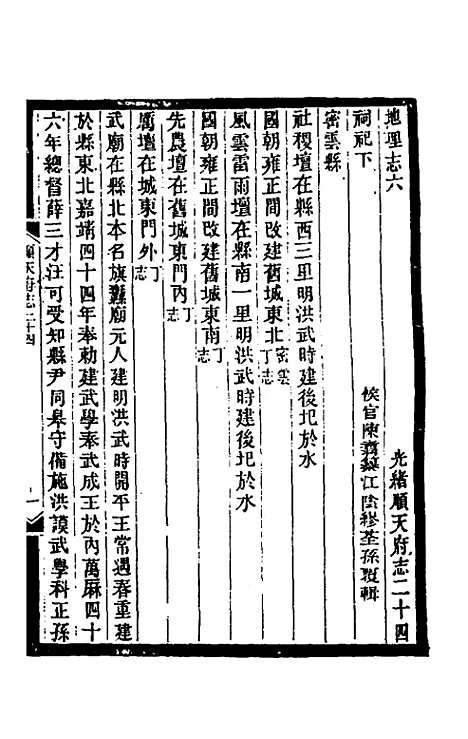 地理志六 光緒順天府志二十四
祠祀下 侯官陳壽 江陰繆荃孫覆輯
密雲縣
社稷壇在縣西三里明洪武時建後圯於水
國朝雍正間改建舊城東北密雲丁志
風雲雷雨壇在縣南一里明洪武時建後圯於水
國朝雍正間改建舊城東南丁志
先農壇在舊城東門內丁志
厲壇在城東門外丁志
武廟在縣北本名旗纛廟元人建明洪武時開平王常遇春重建
於縣東北嘉靖四十四年奉勅建武學奉武成王於內萬厤四十
六年總督薛三才汪可受知縣尹同皋守備施洪謨武學科正孫
順天府志二十四 一